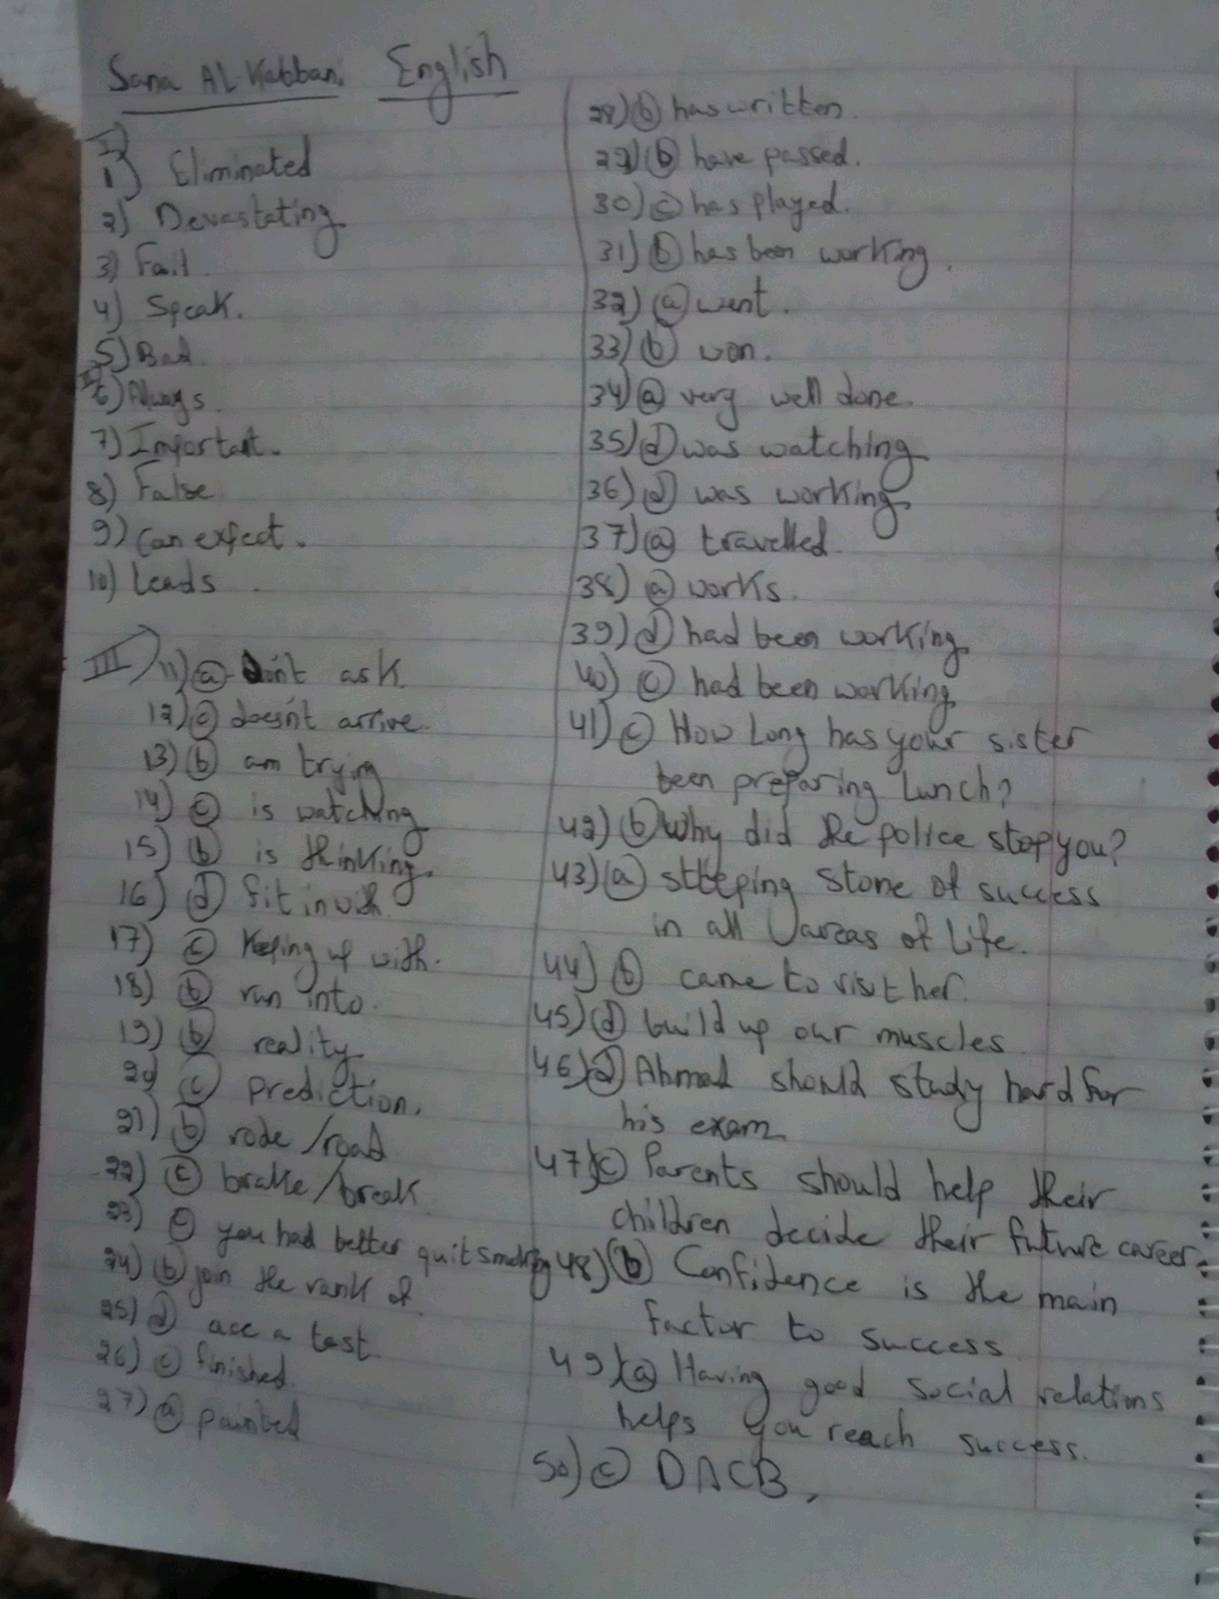 Sana AL-Kabbani English
I)
1) Eliminated
2) Devastating
3) Fail.
4) Speak.
5) Bad.
II)
6) Always.
7) Important.
8) False
9) Can expect.
10) Leads.
III) 11) (a) don't ask.
12) (c) doesn't arrive.
13) (b) am trying
14) (c) is watching
15) (b) is thinking.
16) (d) fit in with.
17) (c) Keeping up with.
18) (b) run into.
19) (b) reality.
20) (c) prediction.
21) (b) rode / road
22) (c) brake / break.
23) (c) you had better quit smoking
24) (b) join the rank of.
25) (d) ace a test.
26) (c) finished.
27) (a) painted
28) (b) has written.
29) (b) have passed.
30) (c) has played.
31) (b) has been working.
32) (a) went.
33) (b) won.
34) (a) very well done.
35) (d) was watching
36) (d) was working.
37) (a) travelled.
38) (a) works.
39) (d) had been working.
40) (c) had been working.
41) (c) How Long has your sister
been preparing Lunch?
42) (b) Why did the police stop you?
43) (a) steeping stone of success
in all areas of Life.
44) (b) came to visit her.
45) (d) build up our muscles
46) (d) Ahmad should study hard for
his exam.
47) (c) Parents should help their
children decide their future career.
48) (b) Confidence is the main
factor to success
49) (a) Having good social relations
helps you reach success.
50) (c) DACB.